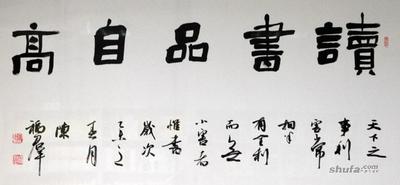 讀書品自高
天下之
事利
害常
相半
有全利
而無
小害者
惟書
歲次
乙未之
春月
陳
福羣
shufa.com